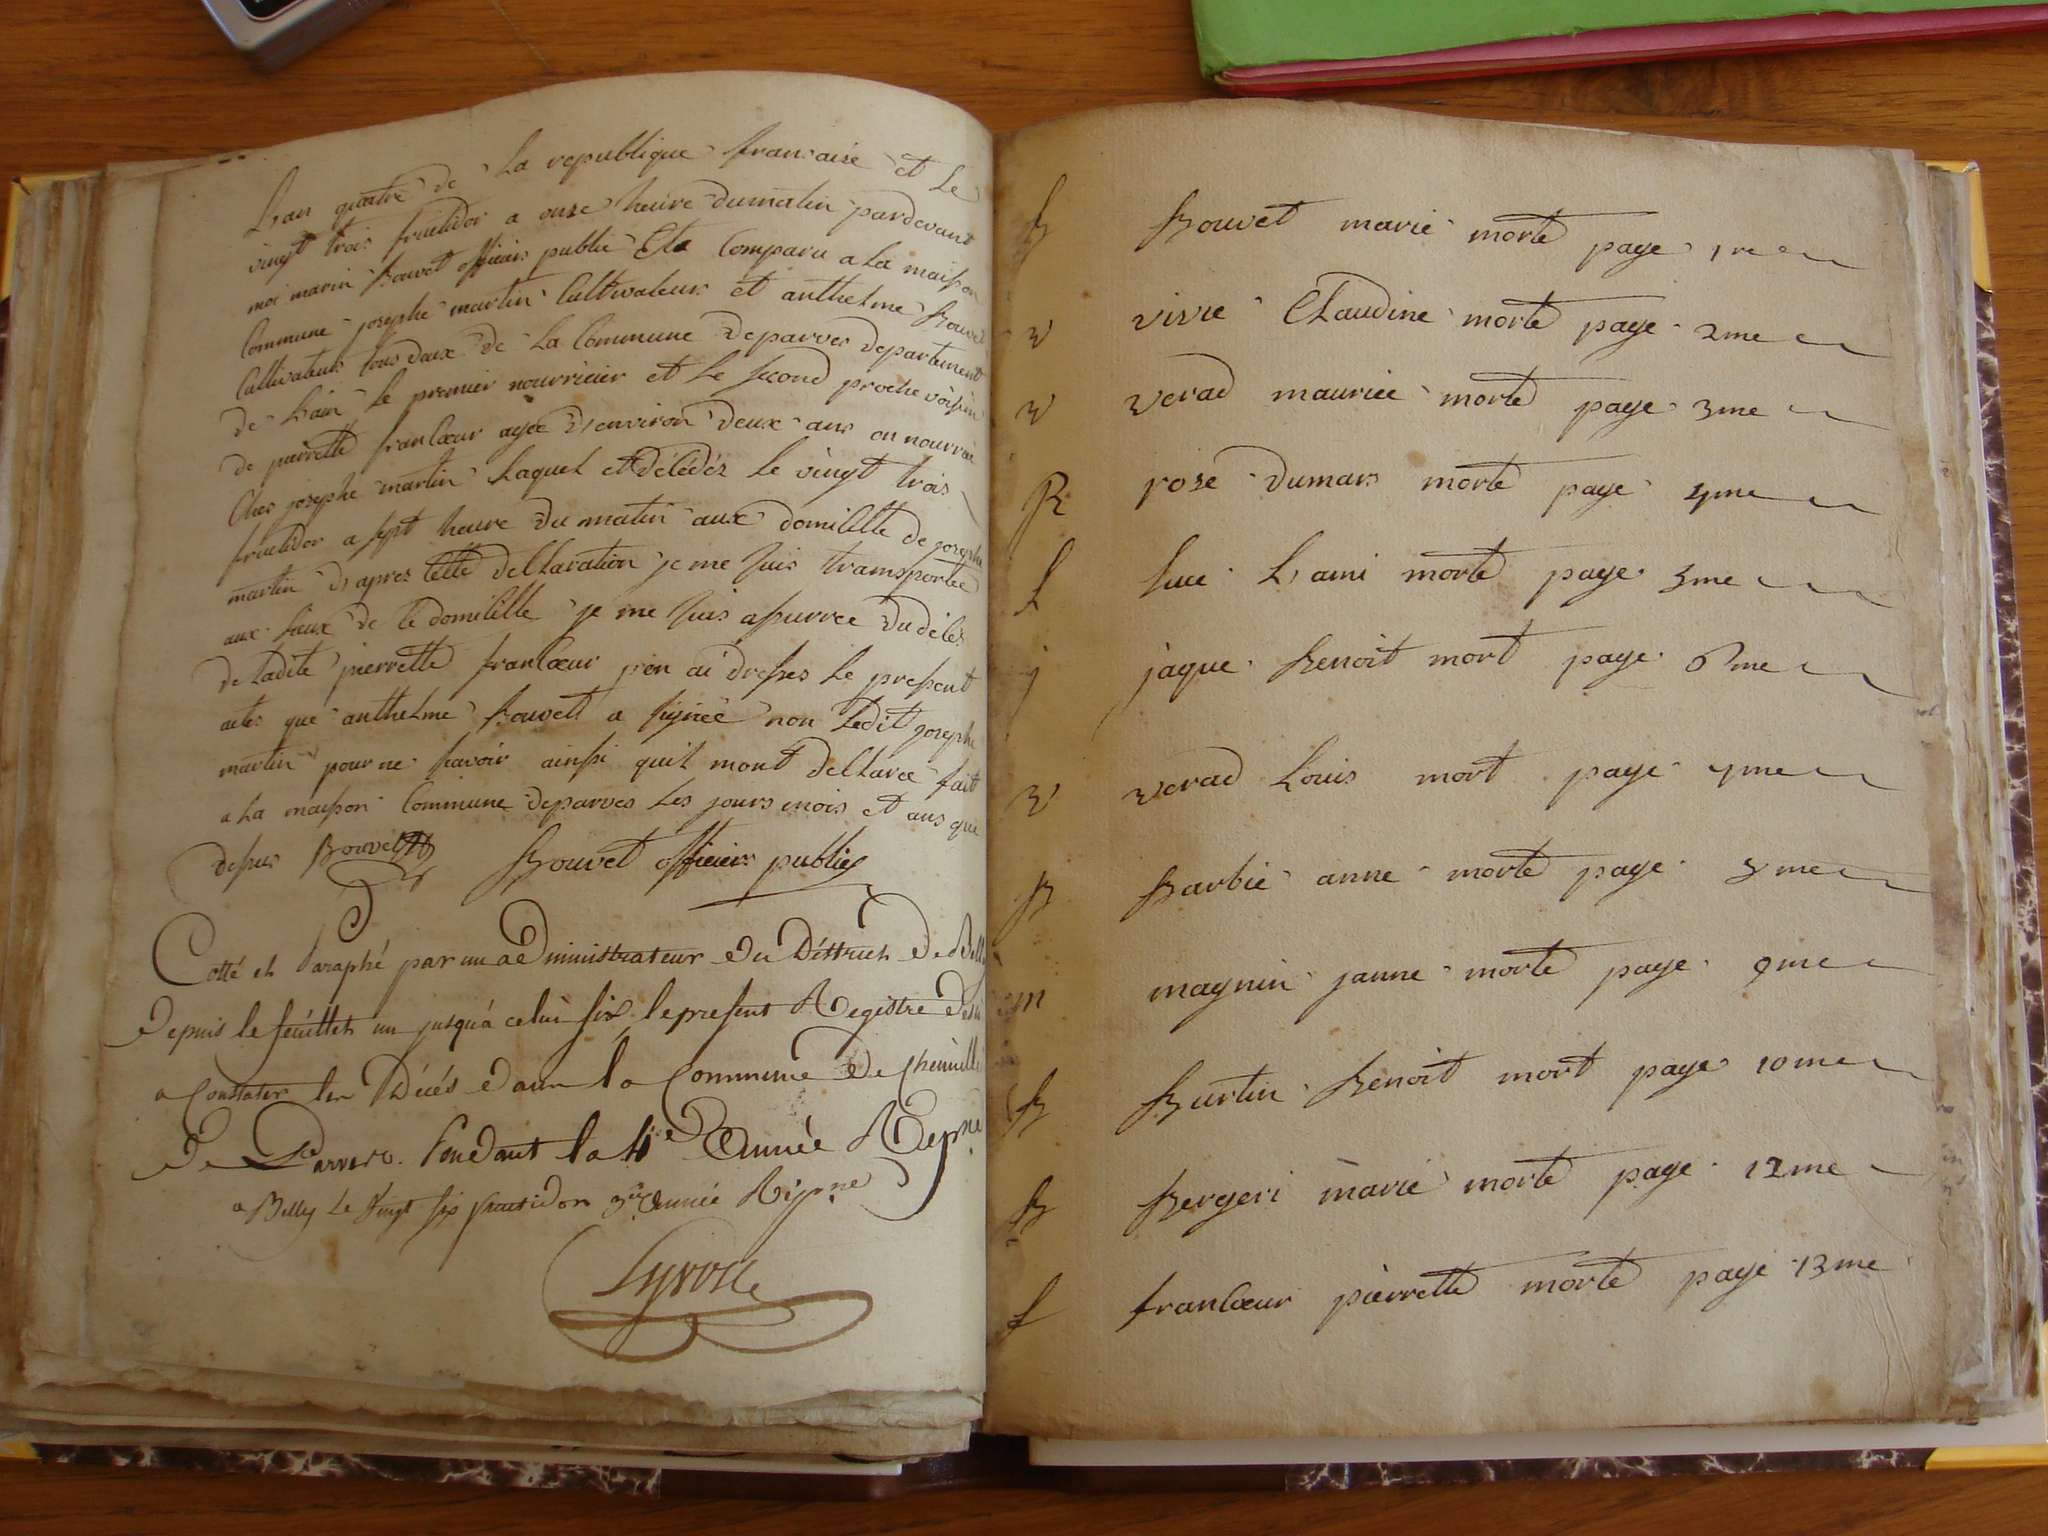 Lan quatre de La republique francaise et Le
vingt trois fructidor a onze heure dumatin pardevant
moi marin Bouvet officiers public Eta Comparu a La maison
Commune josephe martin Cultivateurs et anthelme Bouvet
Cultivateurs tous deux de La Commune deparves departement
de Lain le premier nourricier et Le second proche voisin
de pierrette francœur agée denviron deux ans en nourrice
Ches josephe martin Laquel et décédéz Le vingt trois
fructidor a sept heure du matin aux domicille de josephe
martin daprez cette declaration je me suis transportée
aux lieux de ce domicille je me suis assurree du décès
de Ladite pierrette francœur jen ai dresses le present
actes que anthelme Bouvet a signée non Ledit josephe
martin pour ne savoir ainsi quil mont declaree fait
a La maison Commune deparves Les jours mois et ans que
desus Bouvet Bouvet officiers public
Cotté et Paraphé par un administrateur du District de Belley
depuis le feuillet un jusqu'a celui six le present Registre destiné
a Constater les Décés dans la Commune de Cheminille
de Parves. Pendant la 4e Année Repne
a Belley Le Vingt six fructidor 3e Année Rep.ne
B Bouvet marie morte page 1re
v vivie Claudine morte page 2me
v verad maurice morte page 3me
R rose dumars morte page 4me
L Luce Lami morte page 5me
j jaque Benoit mort page 6me
v verad Louis mort page 7me
B Barbie anne morte page 8me
m magnin janne morte page 9me
B Burtin Benoit mort page 10me
B Bergeri marie morte page 12me
f francœur pierrette morte page 13me